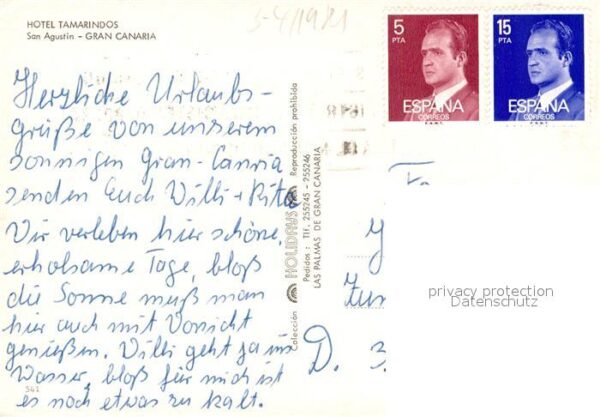 HOTEL TAMARINDOS
San Agustin - GRAN CANARIA
3-4/1981
Herzliche Urlaubs-
grüße von unserem
sonnigen Gran-Canria
senden Euch Willi + Rita
Wir verleben hier schöne,
erholsame Tage, bloß
die Sonne muß man
hier auch mit Vorsicht
genießen. Willi geht ja ins
Wasser, bloß für mich ist
es noch etwas zu kalt.
541
Colección HOLIDAYS Reproducción prohibida
Pedidos: Tlf. 255245 - 255246
LAS PALMAS DE GRAN CANARIA
5
PTA
ESPAÑA
CORREOS
15
PTA
ESPAÑA
CORREOS
D. 3
privacy protection
Datenschutz